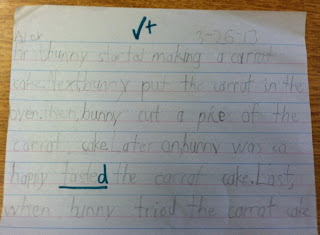 Alex √+ 3-26-13
bunny started making a carrot
cake.Next,bunny put the carrot in the
oven.then,bunny cut a pice of the
carrot, cake.Later on,bunny was so
happy tasted the carrot cake.Last,
when binny tried the carrot cake